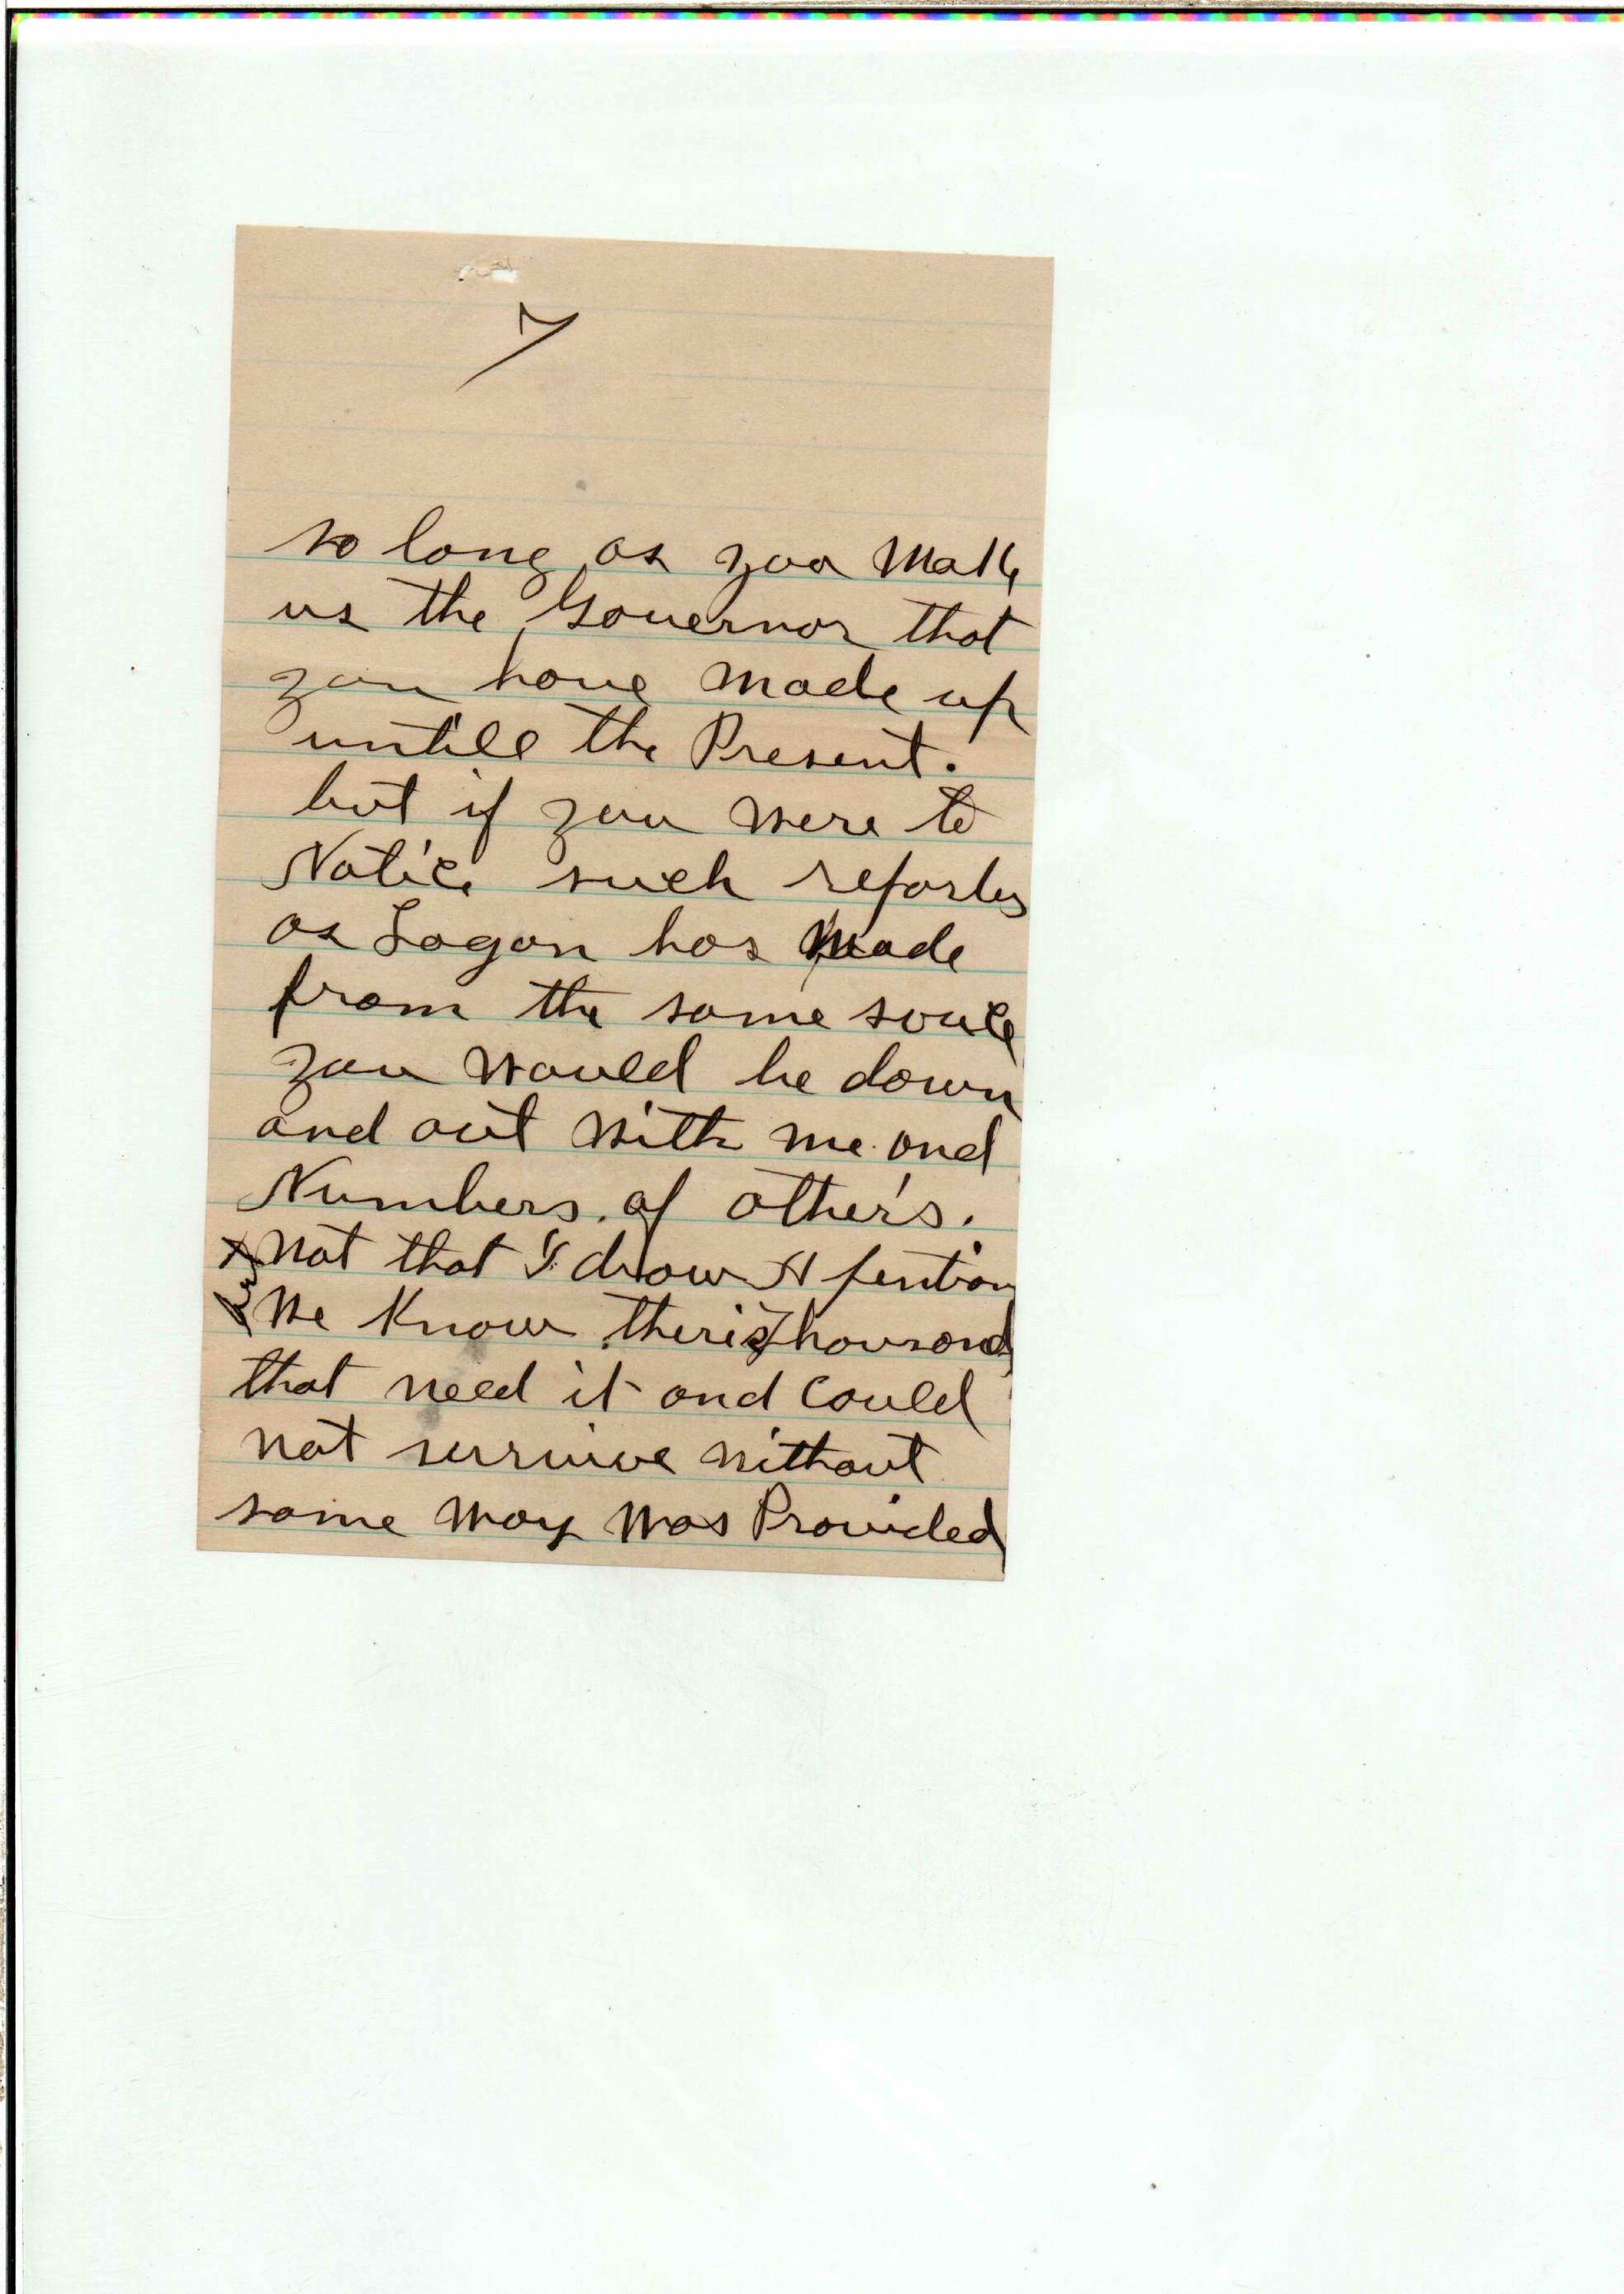 7
so long as you Make
us the Governor that
you have made up
untill the Present.
but if you were to
Notice such reportes
as Logan has Made
from the same souce
you would be down
and out with me and
Numbers. of others.
+ Not that I draw A pention
but We Know ther is Thousand
that need it and Could
not survive without
some way was Provided